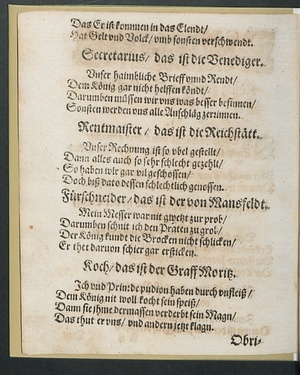 Das Er ist kommen in das Elendt/
Hat Gelt vnd Volck/ vmb sonsten verschwendt.
Secretarius/ das ist die Venediger.
Vnser haimbliche Brieff vnnd Rendt/
Dem König gar nicht helffen köndt/
Darumben müssen wir vns was besser besinnen/
Sonsten werden vns alle Anschläg zerrinnen.
Rentmaister/ das ist die Reichstätt.
Vnser Rechnung ist so vbel gestellt/
Dann alles auch so sehr schlecht gezehlt/
So haben wir gar vil geschossen/
Doch biß dato dessen schlechtlich genossen.
Fürschneider/ das ist der von Mansfeldt.
Mein Messer war nit gwetzt zur prob/
Darumben schnit ich den Praten zu grob/
Der König kundt die Brocken nicht schlicken/
Er thet daruon schier gar ersticken.
Koch/ das ist der Graff Moritz.
Ich vnd haben durch vnfleiß/
Dem König nit woll kocht sein speiß/
Dann sie jhme dermassen verderbt sein Magn/
Das thut er vns/ vnd andern jetzt klagn.
Obri-